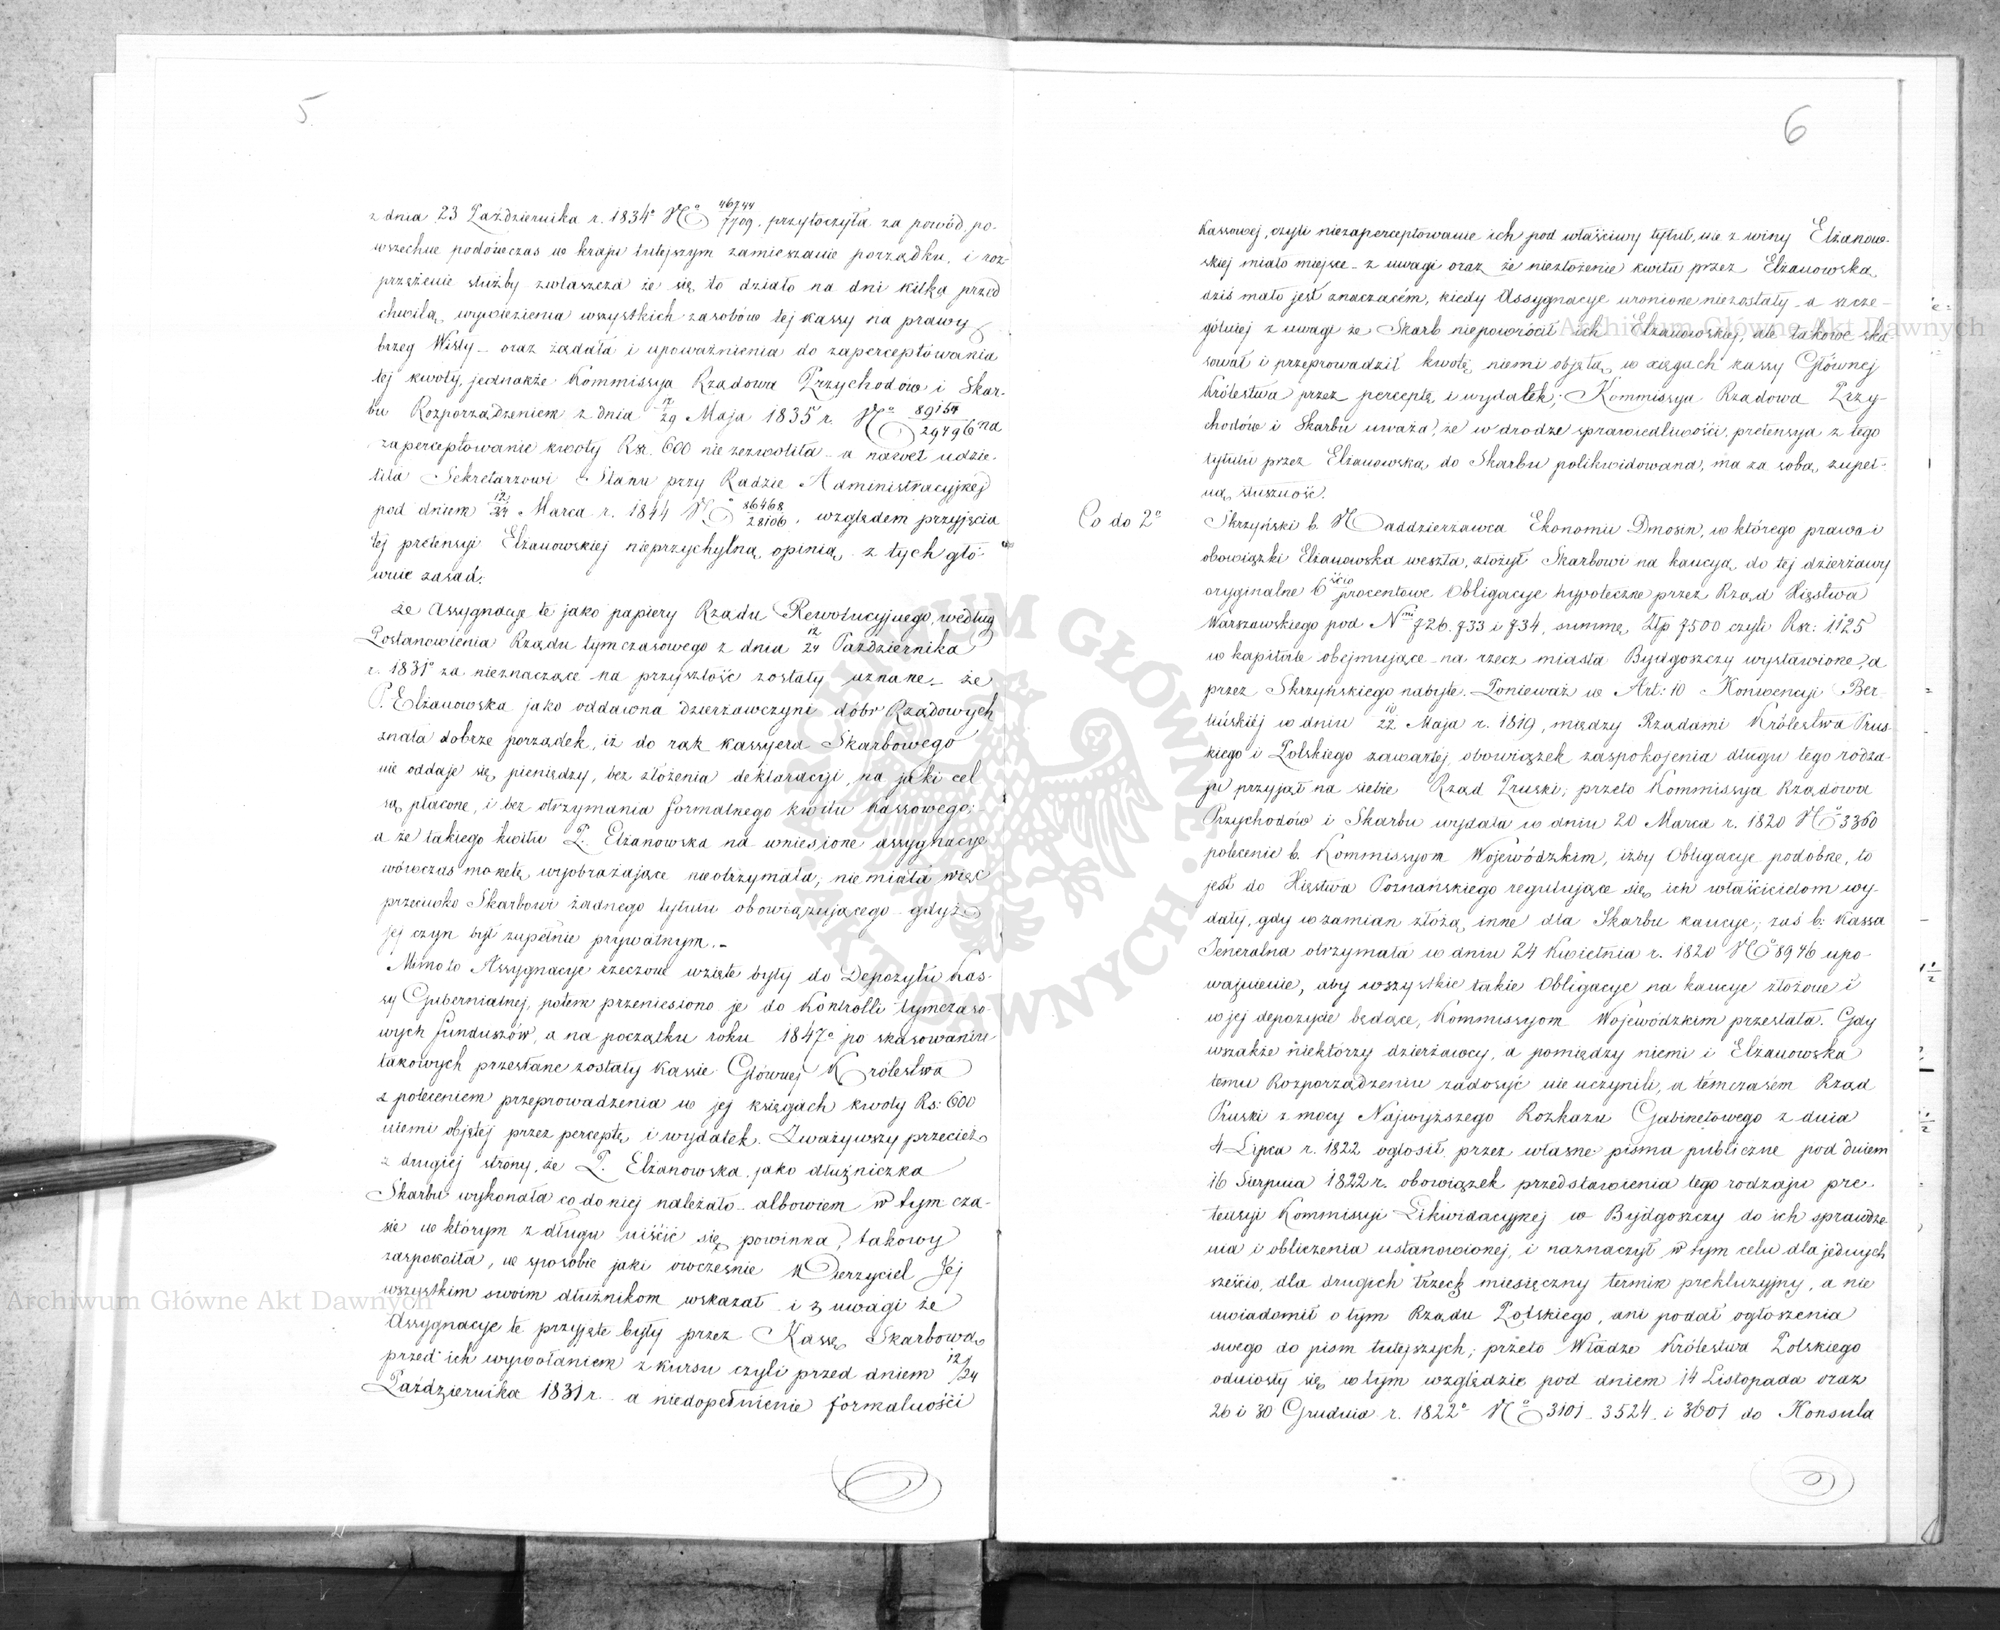 5
z dnia 23 Października r. 1834º Nº 46744/7709. przytoczyła za powód, po-
wszechne podówczas w kraju tutejszym zamieszanie porządku, i roz-
przężenie służby zwłaszcza że się to działo na dni kilka przed
chwilą wywiezienia wszystkich zasobów tej kassy na prawy
brzeg Wisły – oraz żądała i upoważnienia do zaperceptowania
tej kwoty, jednakże Kommissya Rządowa Przychodów i Skar-
bu Rozporządzeniem z dnia 17/29 Maja 1835 r. Nº 89154/29496 na
zaperceptowanie kwoty Rsr. 600 nie zezwoliła – a nawet udzie-
liła Sekretarzowi Stanu przy Radzie Administracyjnej
pod dniem 12/24 Marca r. 1844 Nº 86468/28106, względem przyjęcia
tej pretensyi Elżanowskiej nieprzychylną opinią z tych głó-
wnie zasad:
że Assygnacye te jako papiery Rządu Rewolucyjnego, według
Postanowienia Rządu tymczasowego z dnia 12/24 Października
r. 1831º za nieznaczące na przyszłość zostały uznane – że
P. Elżanowska jako oddawna dzierżawczyni dóbr Rządowych
znała dobrze porządek, iż do rąk Kassyera Skarbowego
nie oddaje się pieniędzy, bez złożenia deklaracyi, na jaki cel
są płacone, i bez otrzymania formalnego kwitu Kassowego;
a że takiego kwitu P. Elżanowska na wniesione assygnacye
wówczas monetę wyobrażające nie otrzymała; nie miała więc
przeciwko Skarbowi żadnego tytułu obowiązującego – gdyż
jej czyn był zupełnie prywatnym. –
Mimo to Assygnacye rzeczone wzięte były do Depozytu Kas-
sy Gubernialnej, potem przeniesiono je do Kontrolli tymczaso-
wych funduszów, a na początku roku 1847º po skasowaniu
takowych przesłane zostały Kassie Głównej Królestwa
z poleceniem przeprowadzenia w jej księgach kwoty Rs: 600
niemi objętej przez perceptę i wydatek. Zważywszy przecież
z drugiej strony, że P. Elżanowska jako dłużniczka
Skarbu wykonała co do niej należało – albowiem w tym cza-
sie w którym z długu uiścić się powinna, takowy
zaspokoiła, w sposobie jaki owcześnie Wierzyciel Jej
wszystkim swoim dłużnikom wskazał – i z uwagi że
Assygnacye te przyjęte były przez Kassę Skarbową
przed ich wywołaniem z kursu czyli przed dniem 12/24
Października 1831 r. – a niedopełnienie formalności
6
Kassowej, czyli niezaperceptowanie ich pod właściwy tytuł, nie z winy Elżanow-
skiej miało miejsce – z uwagi oraz że niezłożenie kwitu przez Elżanowską
dziś mało jest znaczącém, kiedy Assygnacye uronione niezostały – a szcze-
gólniej z uwagi że Skarb niepowrócił ich Elżanowskiej, ale takowe ska-
sował i przeprowadził kwotę niemi objętą w xięgach kassy Głównej
Królestwa przez perceptę i wydatek; Kommissya Rządowa Przy-
chodów i Skarbu uważa, że w drodze sprawiedliwości, pretensya z tego
tytułu przez Elżanowską do Skarbu polikwidowana, ma za sobą zupeł-
ną słuszność.
Co do 2º
Skrzyński b. Naddzierżawca Ekonomii Dmosin, w którego prawa i
obowiązki Elżanowska weszła, złożył Skarbowi na kaucyą do tej dzierżawy
oryginalne 6ścio procentowe Obligacye hypoteczne przez Rząd Xięstwa
Warszawskiego pod Nrmi 726. 733 i 734, summę Złp 7500 czyli Rsr: 1,125
w kapitale obejmujące – na rzecz miasta Bydgoszczy wystawione, a
przez Skrzyńskiego nabyte. Ponieważ w Art: 10 Konwencyi Ber-
lińskiéj w dniu 10/22 Maja r. 1819, między Rządami Królestwa Prus-
kiego i Polskiego zawartéj, obowiązek zaspokojenia długu tego rodza-
ju przyjął na siebie Rząd Pruski; przeto Kommissya Rządowa
Przychodów i Skarbu wydała w dniu 20 Marca r. 1820 Nº 3360
polecenie b. Kommissyom Wojewódzkim, iżby Obligacye podobne, to
jest do Xięstwa Poznańskiego regulujące się, ich właścicielom wy-
dały, gdy w zamian złożą inne dla Skarbu kaucye; zaś b: Kassa
Jeneralna otrzymała w dniu 24 Kwietnia r. 1820 Nº 8946 upo-
ważnienie, aby wszystkie takie Obligacye na kaucye złożone i
w jej depozycie będące, Kommissyom Wojewódzkim przesłała. Gdy
wszakże niektórzy dzierżawcy, a pomiędzy niemi i Elżanowska
temu Rozporządzeniu zadosyć nie uczynili, a témczasém Rząd
Pruski z mocy Najwyższego Rozkazu Gabinetowego z dnia
4 Lipca r. 1822 ogłosił przez własne pisma publiczne pod dniem
16 Sierpnia 1822 r. obowiązek przedstawienia tego rodzaju pre-
tensyi Kommissyi Likwidacyjnej w Bydgoszczy do ich sprawdze-
nia i obliczenia ustanowionej, i naznaczył w tym celu dla jednych
sześcio, dla drugich trzech miesięczny termin prekluzyjny, a nie
uwiadomił o tym Rządu Polskiego, ani podał ogłoszenia
swego do pism tutejszych; przeto Władze Królestwa Polskiego
odniosły się w tym względzie pod dniem 14 Listopada oraz
26 i 30 Grudnia r. 1822º Nº 3101 – 3524 – i 3601 do Konsula
Archiwum Główne Akt Dawnych
Archiwum Główne Akt Dawnych
ARCHIWUM GŁÓWNE AKT DAWNYCH